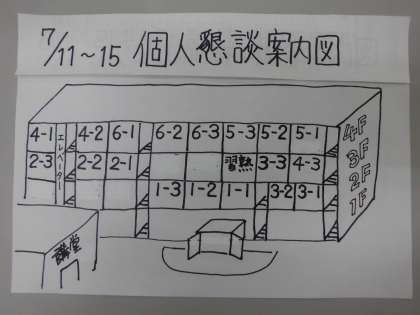 7/11～15 個人懇談案内図
4-1 エレベーター 4-2 6-1 6-2 6-3 5-3 5-2 5-1 4F
2-3 2-2 2-1 習熟 3-3 4-3 3F
1-3 1-2 1-1 3-2 3-1 2F
1F
講堂